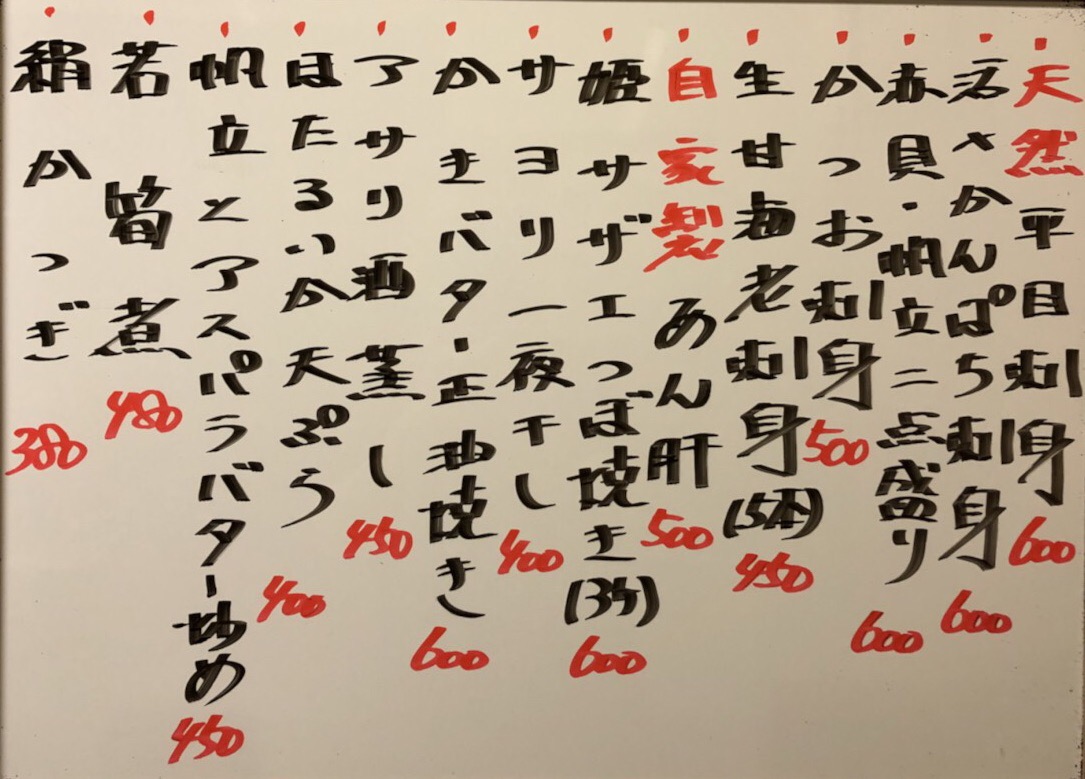 天然平目刺身 600
かんぱち刺身 600
赤貝・帆立二点盛り 600
かつお刺身 500
生甘海老刺身(5本) 450
自家製あん肝 500
姫サザエつぼ焼き(3ケ) 600
サヨリ一夜干し 400
かきバター正油焼き 600
アサリ酒蒸し 450
ほたるいか天ぷら 400
帆立とアスパラバター炒め 450
若筍煮 480
絹かつぎ 380